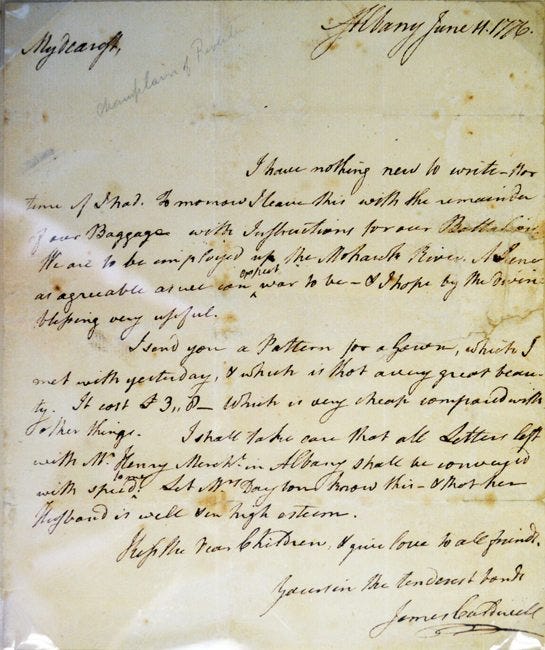 Albany June 11. 1776.
My dearest,
Chaplain of
I have nothing new to write – Nor
time if I had. To morrow I leave this with the remainder
of our Baggage with Instructions for our Battalion.
We are to be employed up the Mohawk River. A Scene
as agreeable as we can expect war to be – & I hope by the divine
blessing very useful.
I send you a Pattern for a Gown, which I
met with yesterday, & which is thot a very great beau-
ty. It cost £3,,8 – Which is very cheap compared with
other things. I shall take care that all Letters left
with Mr. Henry Mercht. in Albany shall be conveyed
to me
with speed. Let Mrs Dayton know this – & that her
Husband is well & in high esteem.
Kiss the dear Children, & give love to all friends.
Yours in the tenderest bonds
James Caldwell